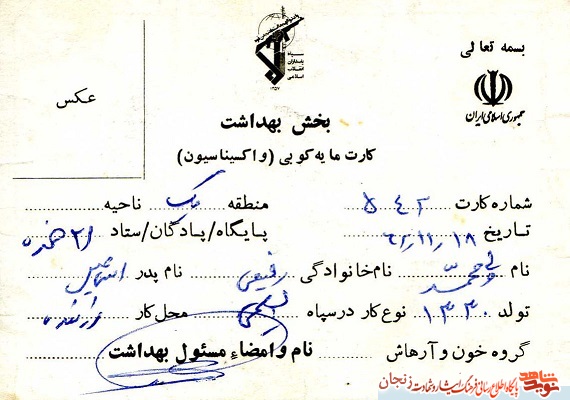 بسمه تعالی
جمهوری اسلامی ایران
سپاه
پاسداران
انقلاب
اسلامی
۱۳۵۷
عکس
بخش بهداشت
کارت مایه کوبی (واکسیناسیون)
شماره کارت ۵۴۲ منطقه یک ناحیه
تاریخ ۶۲,۱۱,۱۸ پایگاه/پادگان/ستاد
نام ولی محمد نام خانوادگی رفیعی نام پدر اسماعیل
تولد ۱۳۳۰ نوع کار در سپاه محل کار
گروه خون و آرهاش نام و امضاء مسئول بهداشت
نوید شاهد
پایگاه اطلاع رسانی فرهنگ ایثار و شهادت زنجان